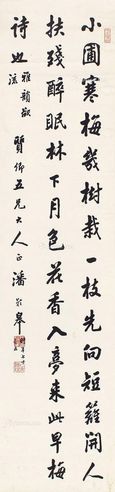 小圃寒梅幾樹栽一枝先向短籬開人
扶殘醉眠林下月色花香入夢來此早梅
詩也 雅韻猷流 賢仰五兄大人正 潘齡皋